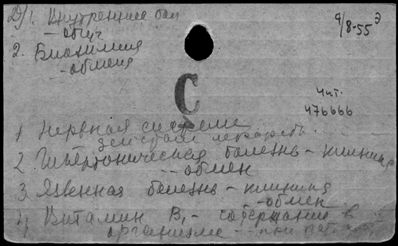 Д/1. Внутренние бол
- общ
2. Биохимия
- обмена
9/8-55 э
С
Чит.
476666
1 Нервная система
действ лекарств.
2. Гипертоническая болезнь - клиника
-- обмен
3. Язвенная болезнь - клиника
- обмен
4 Витамин B₁ - содержание в
организме --